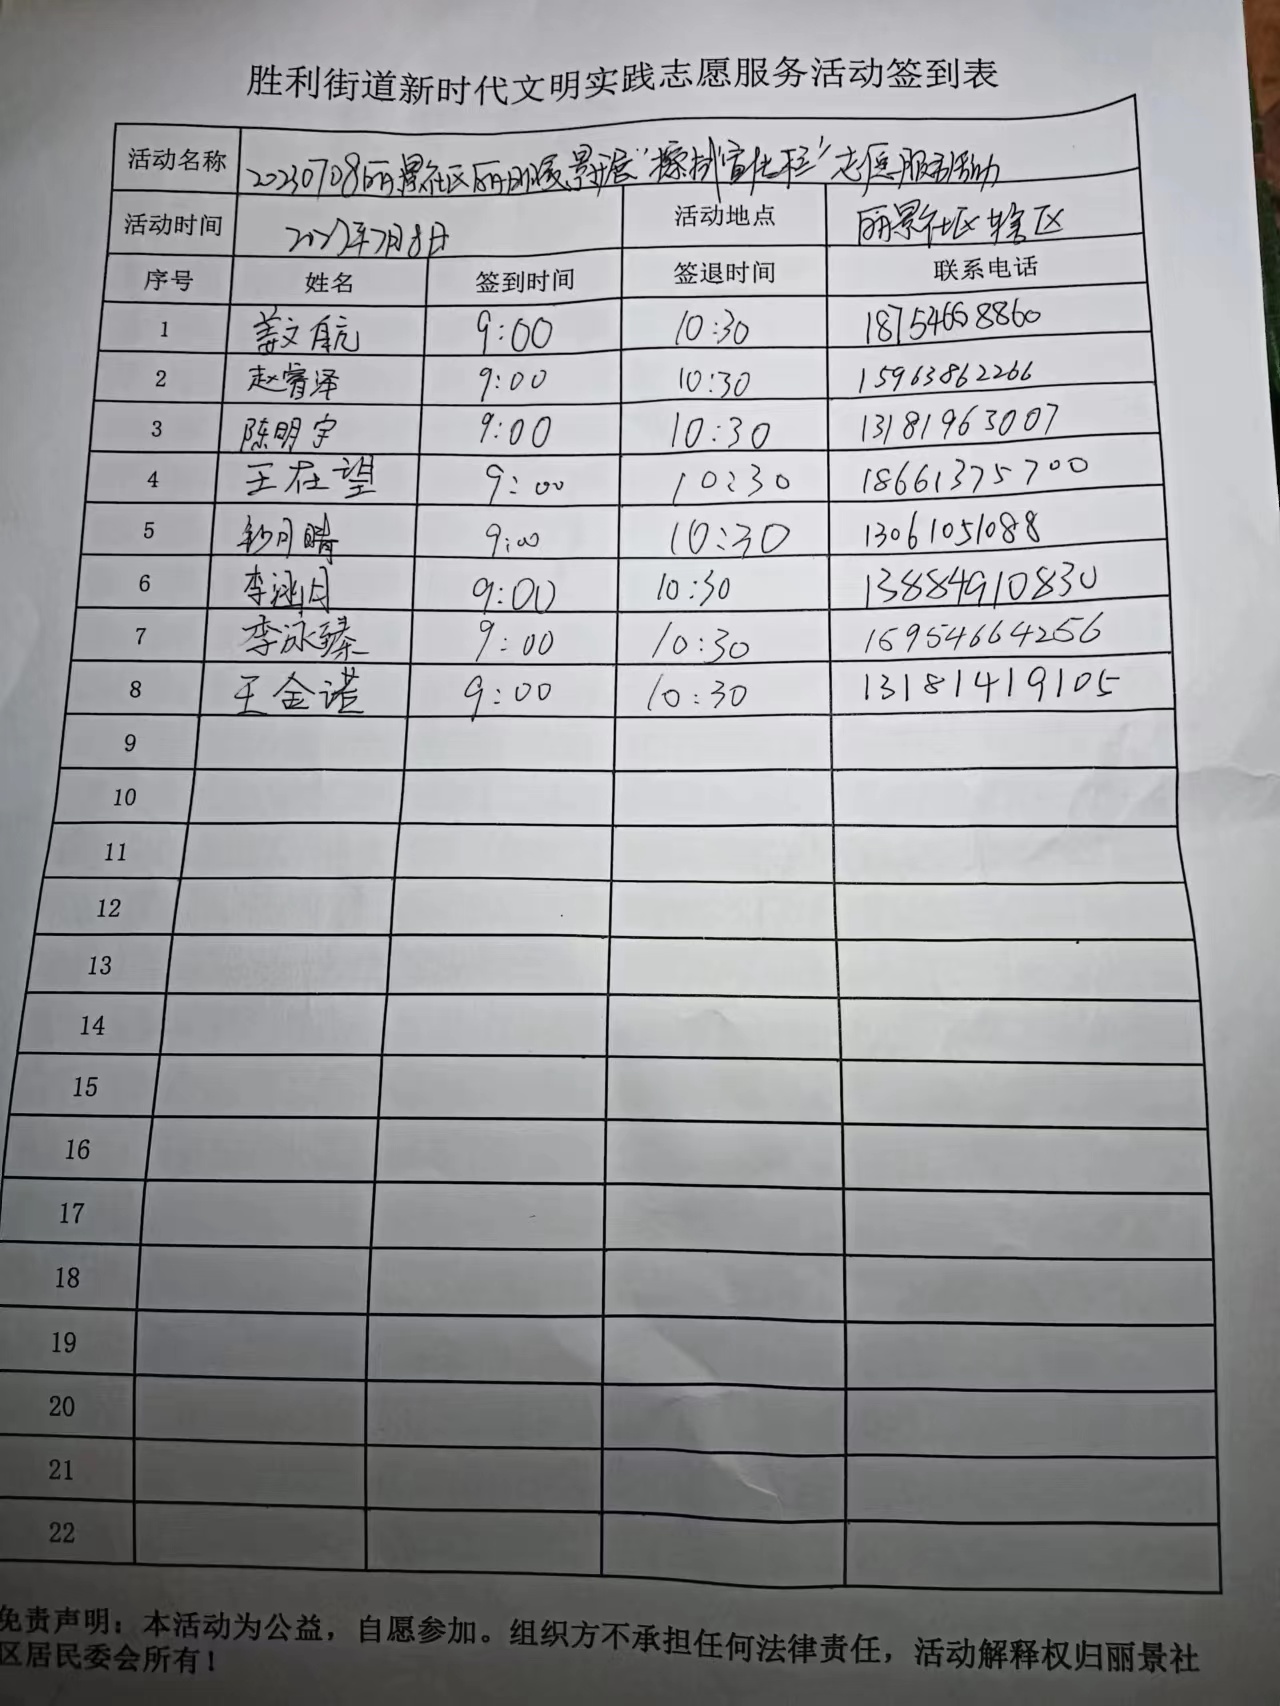 胜利街道新时代文明实践志愿服务活动签到表
活动名称 20230708丽景社区丽明晟景开展“擦拭宣传栏”志愿服务活动
活动时间 2023年7月8日 活动地点 丽景社区辖区
序号 姓名 签到时间 签退时间 联系电话
1 姜文航 9:00 10:30 18754668860
2 赵睿泽 9:00 10:30 15963862266
3 陈明宇 9:00 10:30 13181963007
4 王在望 9:00 10:30 18661375700
5 月晴 9:00 10:30 13061051088
6 李涵月 9:00 10:30 13884910830
7 李泳臻 9:00 10:30 15954664256
8 王金诺 9:00 10:30 13181419105
9
10
11
12
13
14
15
16
17
18
19
20
21
22
免责声明：本活动为公益，自愿参加。组织方不承担任何法律责任，活动解释权归丽景社
区居民委会所有！